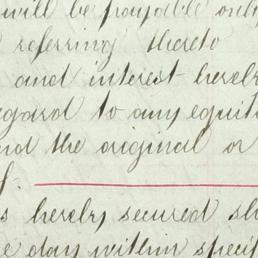 will be payable only
referring thereto
and interest hereby
egard to any equit
nd the original or
f.
s hereby secured sh
e day within specif